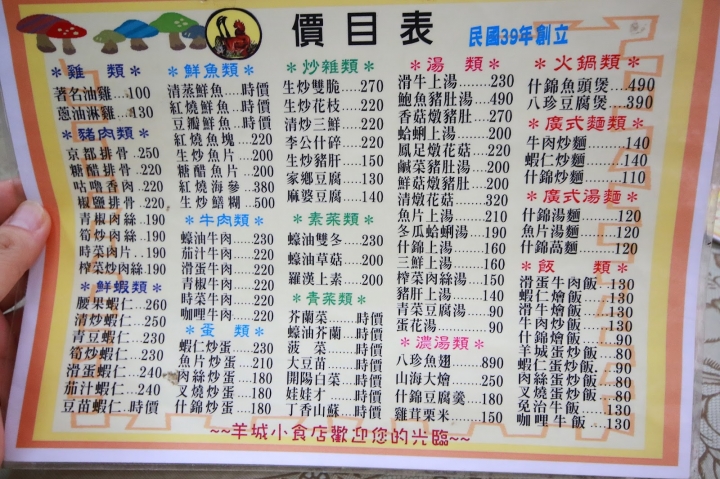 價目表
民國39年創立
＊雞 類＊
著名油雞...100
蔥油淋雞...430
＊豬肉類＊
京都排骨.250
糖醋排骨.220
咕嚕香肉.220
椒鹽排骨.220
青椒肉絲.190
筍炒肉絲.190
時菜肉片.190
榨菜炒肉絲190
＊鮮蝦類＊
腰果蝦仁...260
清炒蝦仁...250
青豆蝦仁...230
筍炒蝦仁...230
滑蛋蝦仁...240
茄汁蝦仁...240
豆苗蝦仁...時價
＊鮮魚類＊
清蒸鮮魚...時價
紅燒鮮魚...時價
豆瓣鮮魚...時價
紅燒魚塊...220
生炒魚片...200
糖醋魚片...200
紅燒海參...380
生炒鱔糊...500
＊牛肉類＊
蠔油牛肉...230
茄汁牛肉...220
滑蛋牛肉...220
青椒牛肉...220
時菜牛肉...220
咖哩牛肉...220
＊蛋 類＊
蝦仁炒蛋...230
魚片炒蛋...210
肉絲炒蛋...180
叉燒炒蛋...180
什錦炒蛋...180
＊炒雜類＊
生炒雙脆...270
生炒花枝...220
清炒三鮮...220
李公什碎...220
生炒豬肝...150
家鄉豆腐...130
麻婆豆腐...140
＊素菜類＊
蠔油雙冬...230
蠔油草菇...200
羅漢上素...200
＊青菜類＊
芥蘭菜...時價
蠔油芥蘭...時價
菠 菜...時價
大豆苗...時價
開陽白菜...時價
娃娃才...時價
丁香山蘇...時價
＊湯 類＊
滑牛上湯......230
鮑魚豬肚湯.490
香菇燉豬肚.270
蛤蜊上湯...200
鳳足燉花菇...220
鹹菜豬肚湯.200
鮮菇燉豬肚.200
清燉花菇...320
魚片上湯...210
冬瓜蛤蜊湯.190
什錦上湯...160
三鮮上湯...160
榨菜肉絲湯.150
豬肝上湯...140
青菜豆腐湯.90
蛋花湯...90
＊濃湯類＊
八珍魚翅...890
山海大燴...250
什錦豆腐羹...180
雞茸栗米...150
＊火鍋類＊
什錦魚頭煲...490
八珍豆腐煲...390
＊廣式麵類＊
牛肉炒麵...140
蝦仁炒麵...140
什錦炒麵...110
＊廣式湯麵＊
什錦湯麵...120
魚片湯麵...120
什錦萵麵...120
＊飯 類＊
滑蛋牛肉飯.130
蝦仁燴飯...130
滑牛燴飯...130
牛肉炒飯...130
什錦燴飯...90
羊城蛋炒飯..80
蝦仁蛋炒飯..90
肉絲蛋炒飯..80
叉燒蛋炒飯..80
免治牛飯...130
咖哩牛飯...130
~~羊城小食店歡迎您的光臨~~